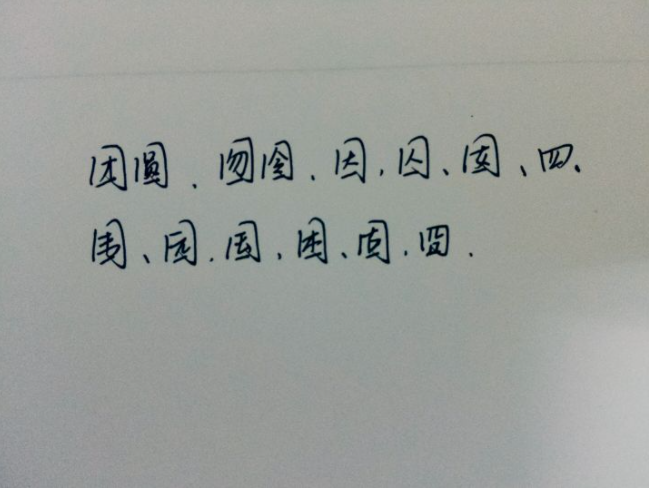 团圆、囫囵、因、囚、国、四、
围、园、国、困、固、